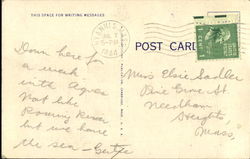 THIS SPACE FOR WRITING MESSAGES
POST CARD
5-PM
Down here for
a week
with Agnes
Not like
but we have
the sea -
Miss Elsie Sadler
Pine Grove St
Needham
Heights
Mass.